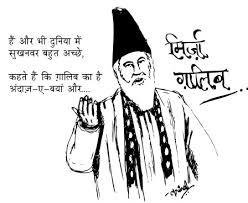 हैं और भी दुनिया में
सुख़नवर बहुत अच्छे,
कहते हैं कि ग़ालिब का है
अंदाज़-ए-बयां और....
मिर्ज़ा
ग़ालिब...